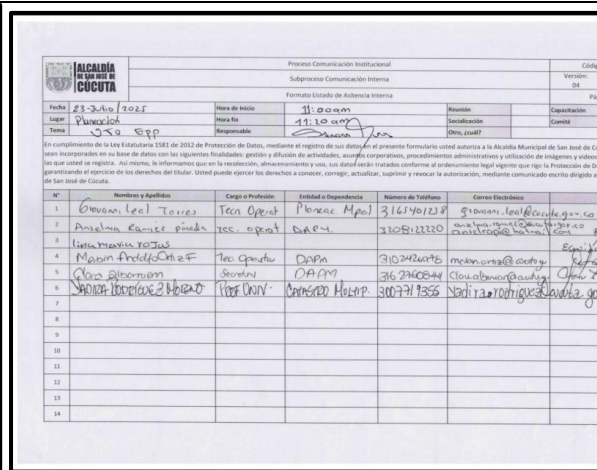 ALCALDÍA
DE SAN JOSÉ DE
CÚCUTA
Proceso Comunicación Institucional
Subproceso Comunicación Interna
Formato Listado de Asitencia Interna
Códig
Versión:
04
Pá
Fecha 23-Julio/2025 Hora de Inicio 11:00am Reunión Capacitación
Lugar Planeación Hora fin 11:20am Socialización Comité
Tema USO EPP Responsable Otro, cuál?
En cumplimiento de la Ley Estatutaria 1581 de 2012 de Protección de Datos, mediante el registro de sus datos en el presente formulario usted autoriza a la Alcaldía Municipal de San José de C
sean incorporados en su base de datos con las siguientes finalidades: gestión y difusión de actividades, asuntos corporativos, procedimientos administrativos y utilización de imágenes y videos
las que usted se registra. Así mismo, le informamos que en la recolección, almacenamiento y uso, sus datos serán tratados conforme al ordenamiento legal vigente que rige la Protección de D
garantizando el ejercicio de los derechos del titular. Usted puede ejercer los derechos a conocer, corregir, actualizar, suprimir y revocar la autorización, mediante comunicado escrito dirigido a
de San José de Cúcuta.
N° Nombres y Apellidos Cargo o Profesión Entidad o Dependencia Número de Teléfono Correo Electrónico
1 Giovanni Leal Torres Tecn Operat Planeac Mpal 3163401238 giovanni.leal@cucuta.gov.co
2 Anselma Ramirez pineda tec. operat DAPM. 3208122220
3 lina maria rojas
4 DAPM 3102426078
5 Clara Albornoz Secretary DAPM 3162360844
6 YADIRA RODRIGUEZ MORENO PROF UNIV. CATASTRO MULTIP. 3007719356
7
8
9
10
11
12
13
14